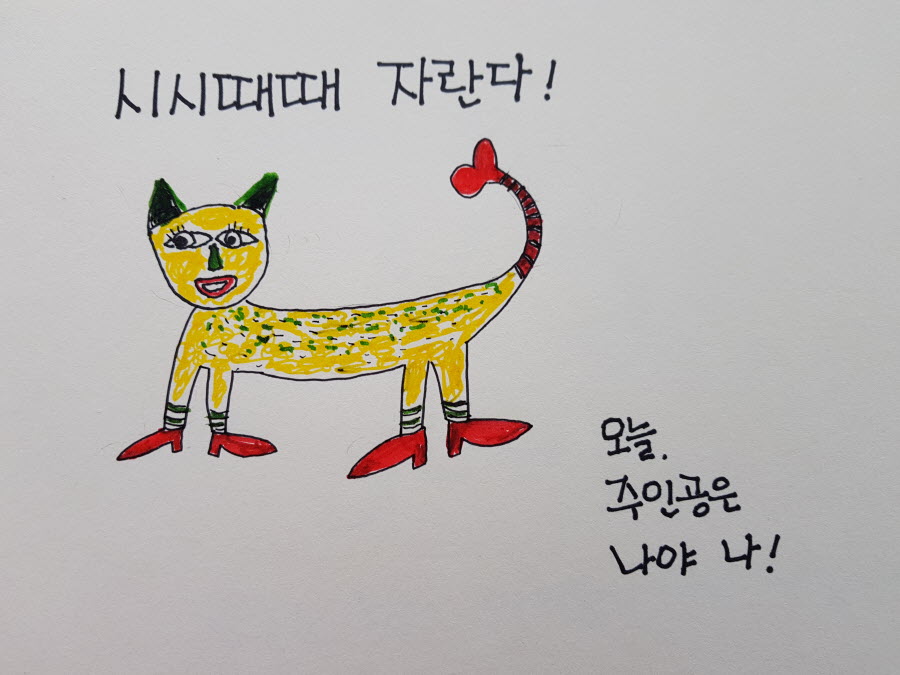 시시때때 자란다!
오늘.
주인공은
나야 나!